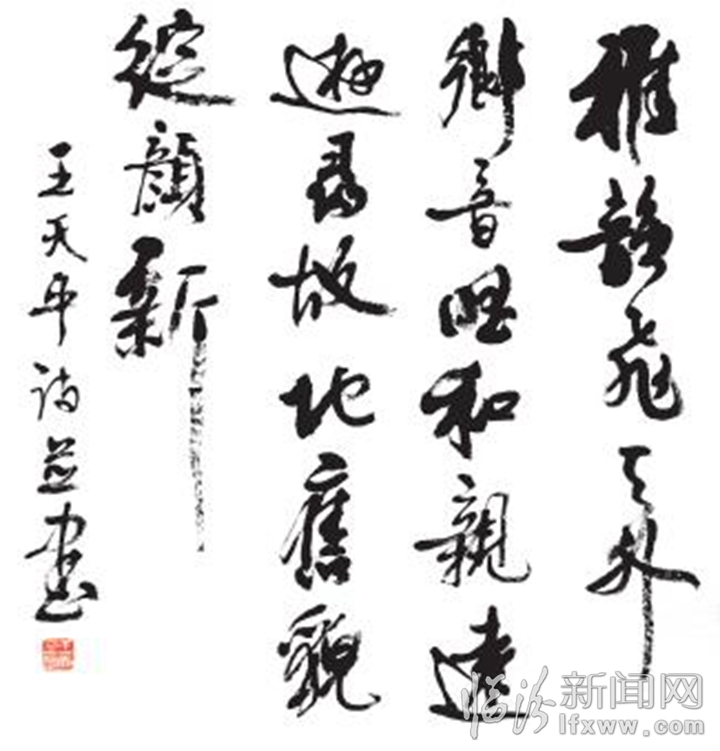 雅韻飛天外
鄉音唱和親遠
遊尋故地舊貌
綻顏新
王天平诗並书
临汾新闻网
lfxww.com